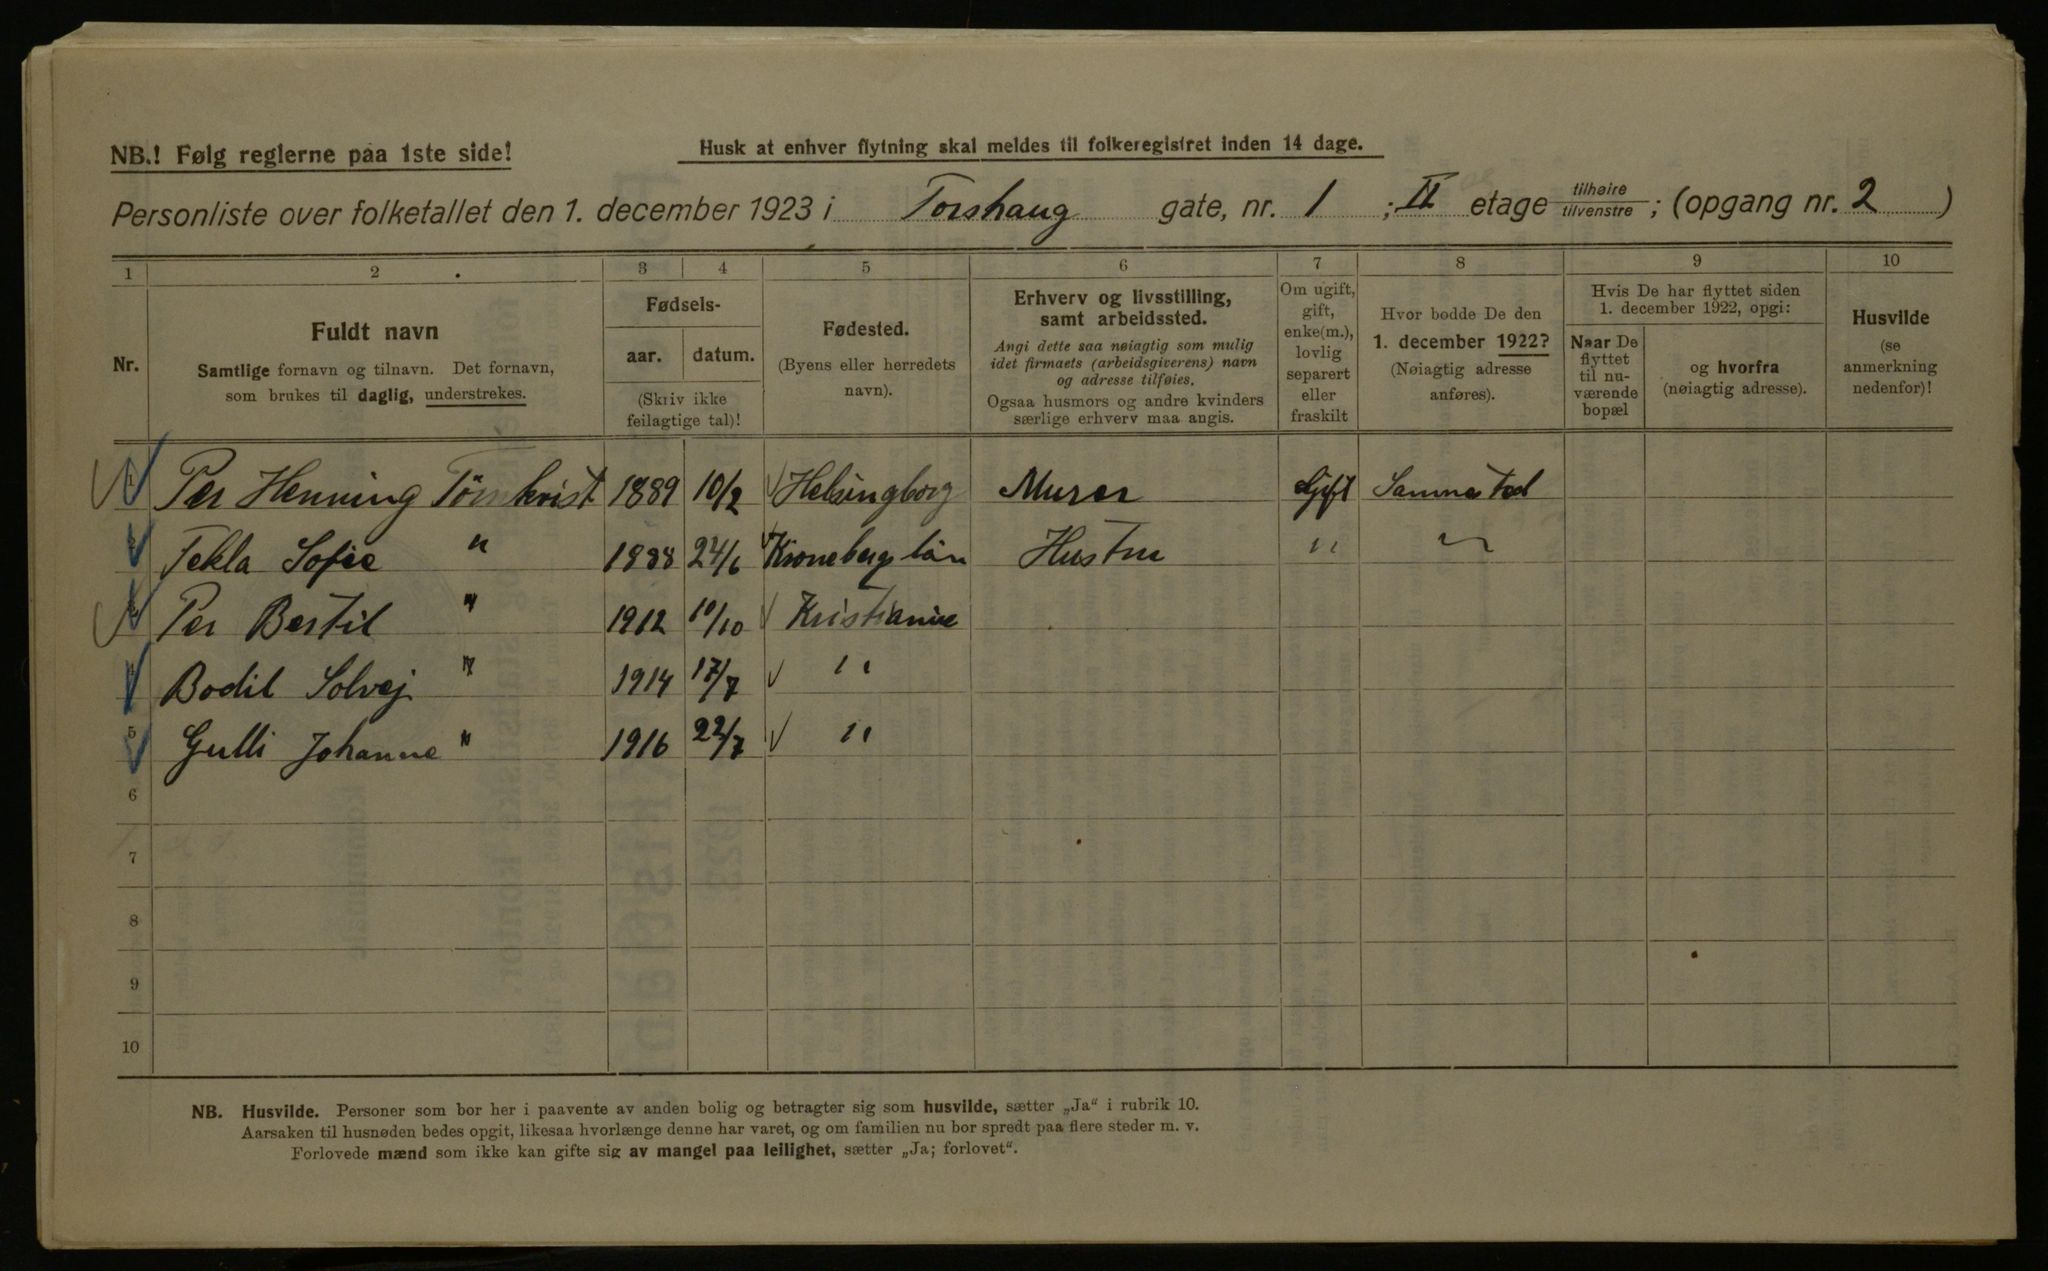 NB.! Følg reglerne paa 1ste side!
Husk at enhver flytning skal meldes til folkeregistret inden 14 dage.
Personliste over folketallet den 1. december 1923 i Torshaug gate, nr. 1 ; II etage tilhøire tilvenstre ; (opgang nr. 2 )
1 2 3 4 5 6 7 8 9 10
Nr.
Fuldt navn
Samtlige fornavn og tilnavn. Det fornavn,
som brukes til daglig, understrekes.
Fødsels-
aar. datum.
(Skriv ikke
feilagtige tal)!
Fødested.
(Byens eller herredets
navn).
Erhverv og livsstilling,
samt arbeidssted.
Angi dette saa nøiagtig som mulig
idet firmaets (arbeidsgiverens) navn
og adresse tilføies.
Ogsaa husmors og andre kvinders
særlige erhverv maa angis.
Om ugift,
gift,
enke(m.),
lovlig
separert
eller
fraskilt
Hvor bodde De den
1. december 1922?
(Nøiagtig adresse
anføres).
Hvis De har flyttet siden
1. december 1922, opgi:
Naar De
flyttet
til nu-
værende
bopæl
og hvorfra
(nøiagtig adresse).
Husvilde
(se
anmerkning
nedenfor)!
Per Henning Törnkvist 1889 10/2 Helsingborg Murer Gift Samme sted
Tekla Sofie " 1888 24/6 Kronebergs län Hustru " "
Per Bertil " 1912 10/10 Kristiania
Bodil Solvej " 1914 17/7 "
5 Gulli Johanne " 1916 22/7 "
6
7
8
9
10
NB. Husvilde. Personer som bor her i paavente av anden bolig og betragter sig som husvilde, sætter „Ja“ i rubrik 10.
Aarsaken til husnøden bedes opgit, likesaa hvorlænge denne har varet, og om familien nu bor spredt paa flere steder m. v.
Forlovede mænd som ikke kan gifte sig av mangel paa leilighet, sætter „Ja; forlovet“.